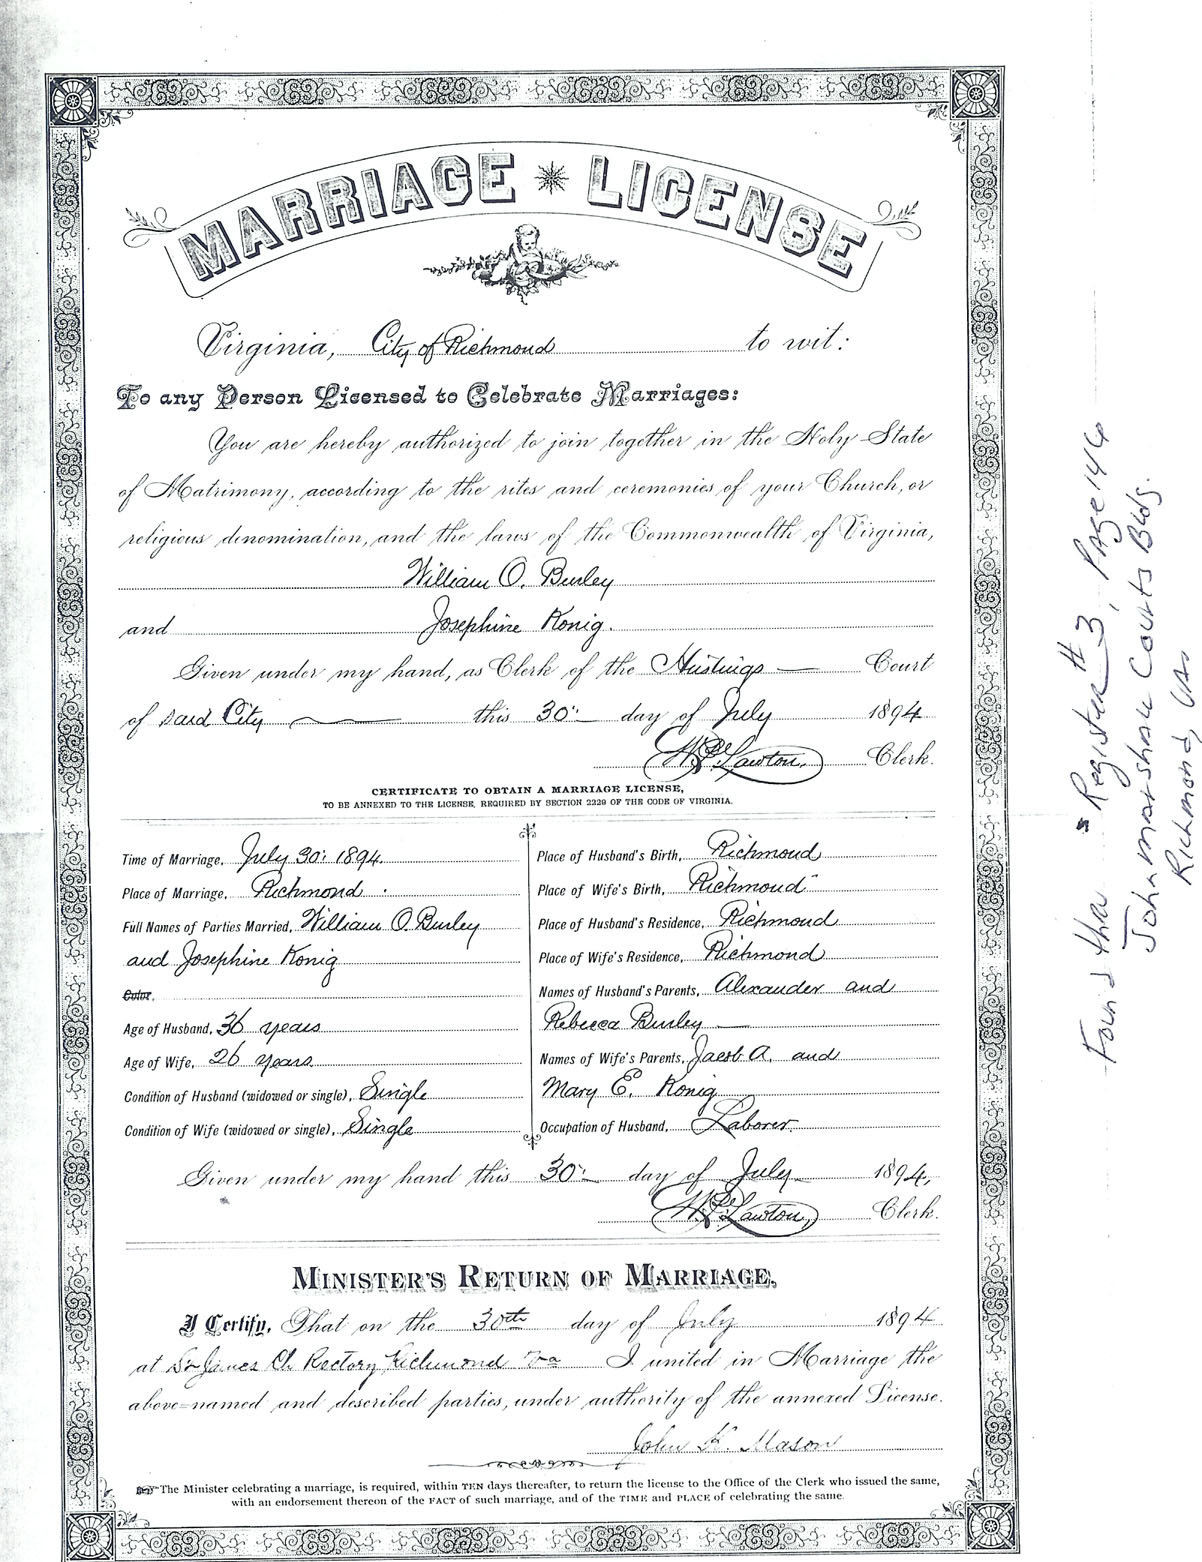 MARRIAGE LICENSE
Virginia, City of Richmond to wit:
To any Person Licensed to Celebrate Marriages:
You are hereby authorized to join together in the Holy State
of Matrimony, according to the rites and ceremonies of your Church, or
religious denomination, and the laws of the Commonwealth of Virginia,
William O. Burley
and Josephine Konig.
Given under my hand, as Clerk of the Hustings Court
of said City this 30" day of July 1894
Lawton, Clerk.
CERTIFICATE TO OBTAIN A MARRIAGE LICENSE,
TO BE ANNEXED TO THE LICENSE, REQUIRED BY SECTION 2229 OF THE CODE OF VIRGINIA.
Time of Marriage, July 30" 1894.
Place of Marriage, Richmond.
Full Names of Parties Married, William O. Burley
and Josephine Konig
Color,
Age of Husband, 36 years
Age of Wife, 26 years.
Condition of Husband (widowed or single), Single
Condition of Wife (widowed or single), Single
Place of Husband's Birth, Richmond
Place of Wife's Birth, Richmond
Place of Husband's Residence, Richmond
Place of Wife's Residence, Richmond
Names of Husband's Parents, Alexander and
Rebecca Burley
Names of Wife's Parents, Jacob A. and
Mary E. Konig
Occupation of Husband, Laborer.
Given under my hand this 30" day of July 1894,
Lawton, Clerk.
MINISTER'S RETURN OF MARRIAGE.
I Certify, That on the 30th day of July 1894
at St James Ch. Rectory Richmond Va I united in Marriage the
above-named and described parties, under authority of the annexed License.
John K. Mason
The Minister celebrating a marriage, is required, within TEN days thereafter, to return the license to the Office of the Clerk who issued the same,
with an endorsement thereof of the FACT of such marriage, and of the TIME and PLACE of celebrating the same.
Found thru Register # 3, Page 146
John Marshall Courts Bldg.
Richmond, Va